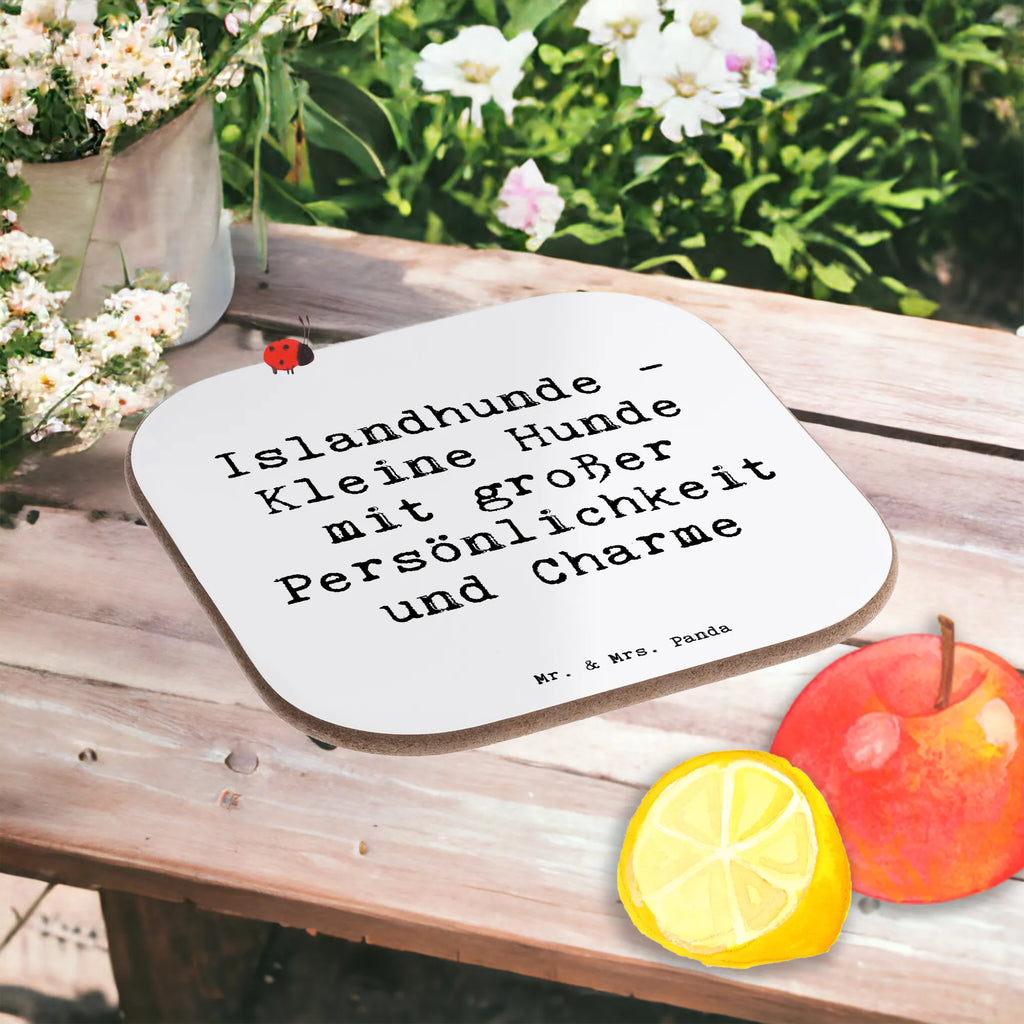 Islandhunde –
Kleine Hunde
mit großer
Persönlichkeit
und Charme
Mr. & Mrs. Panda